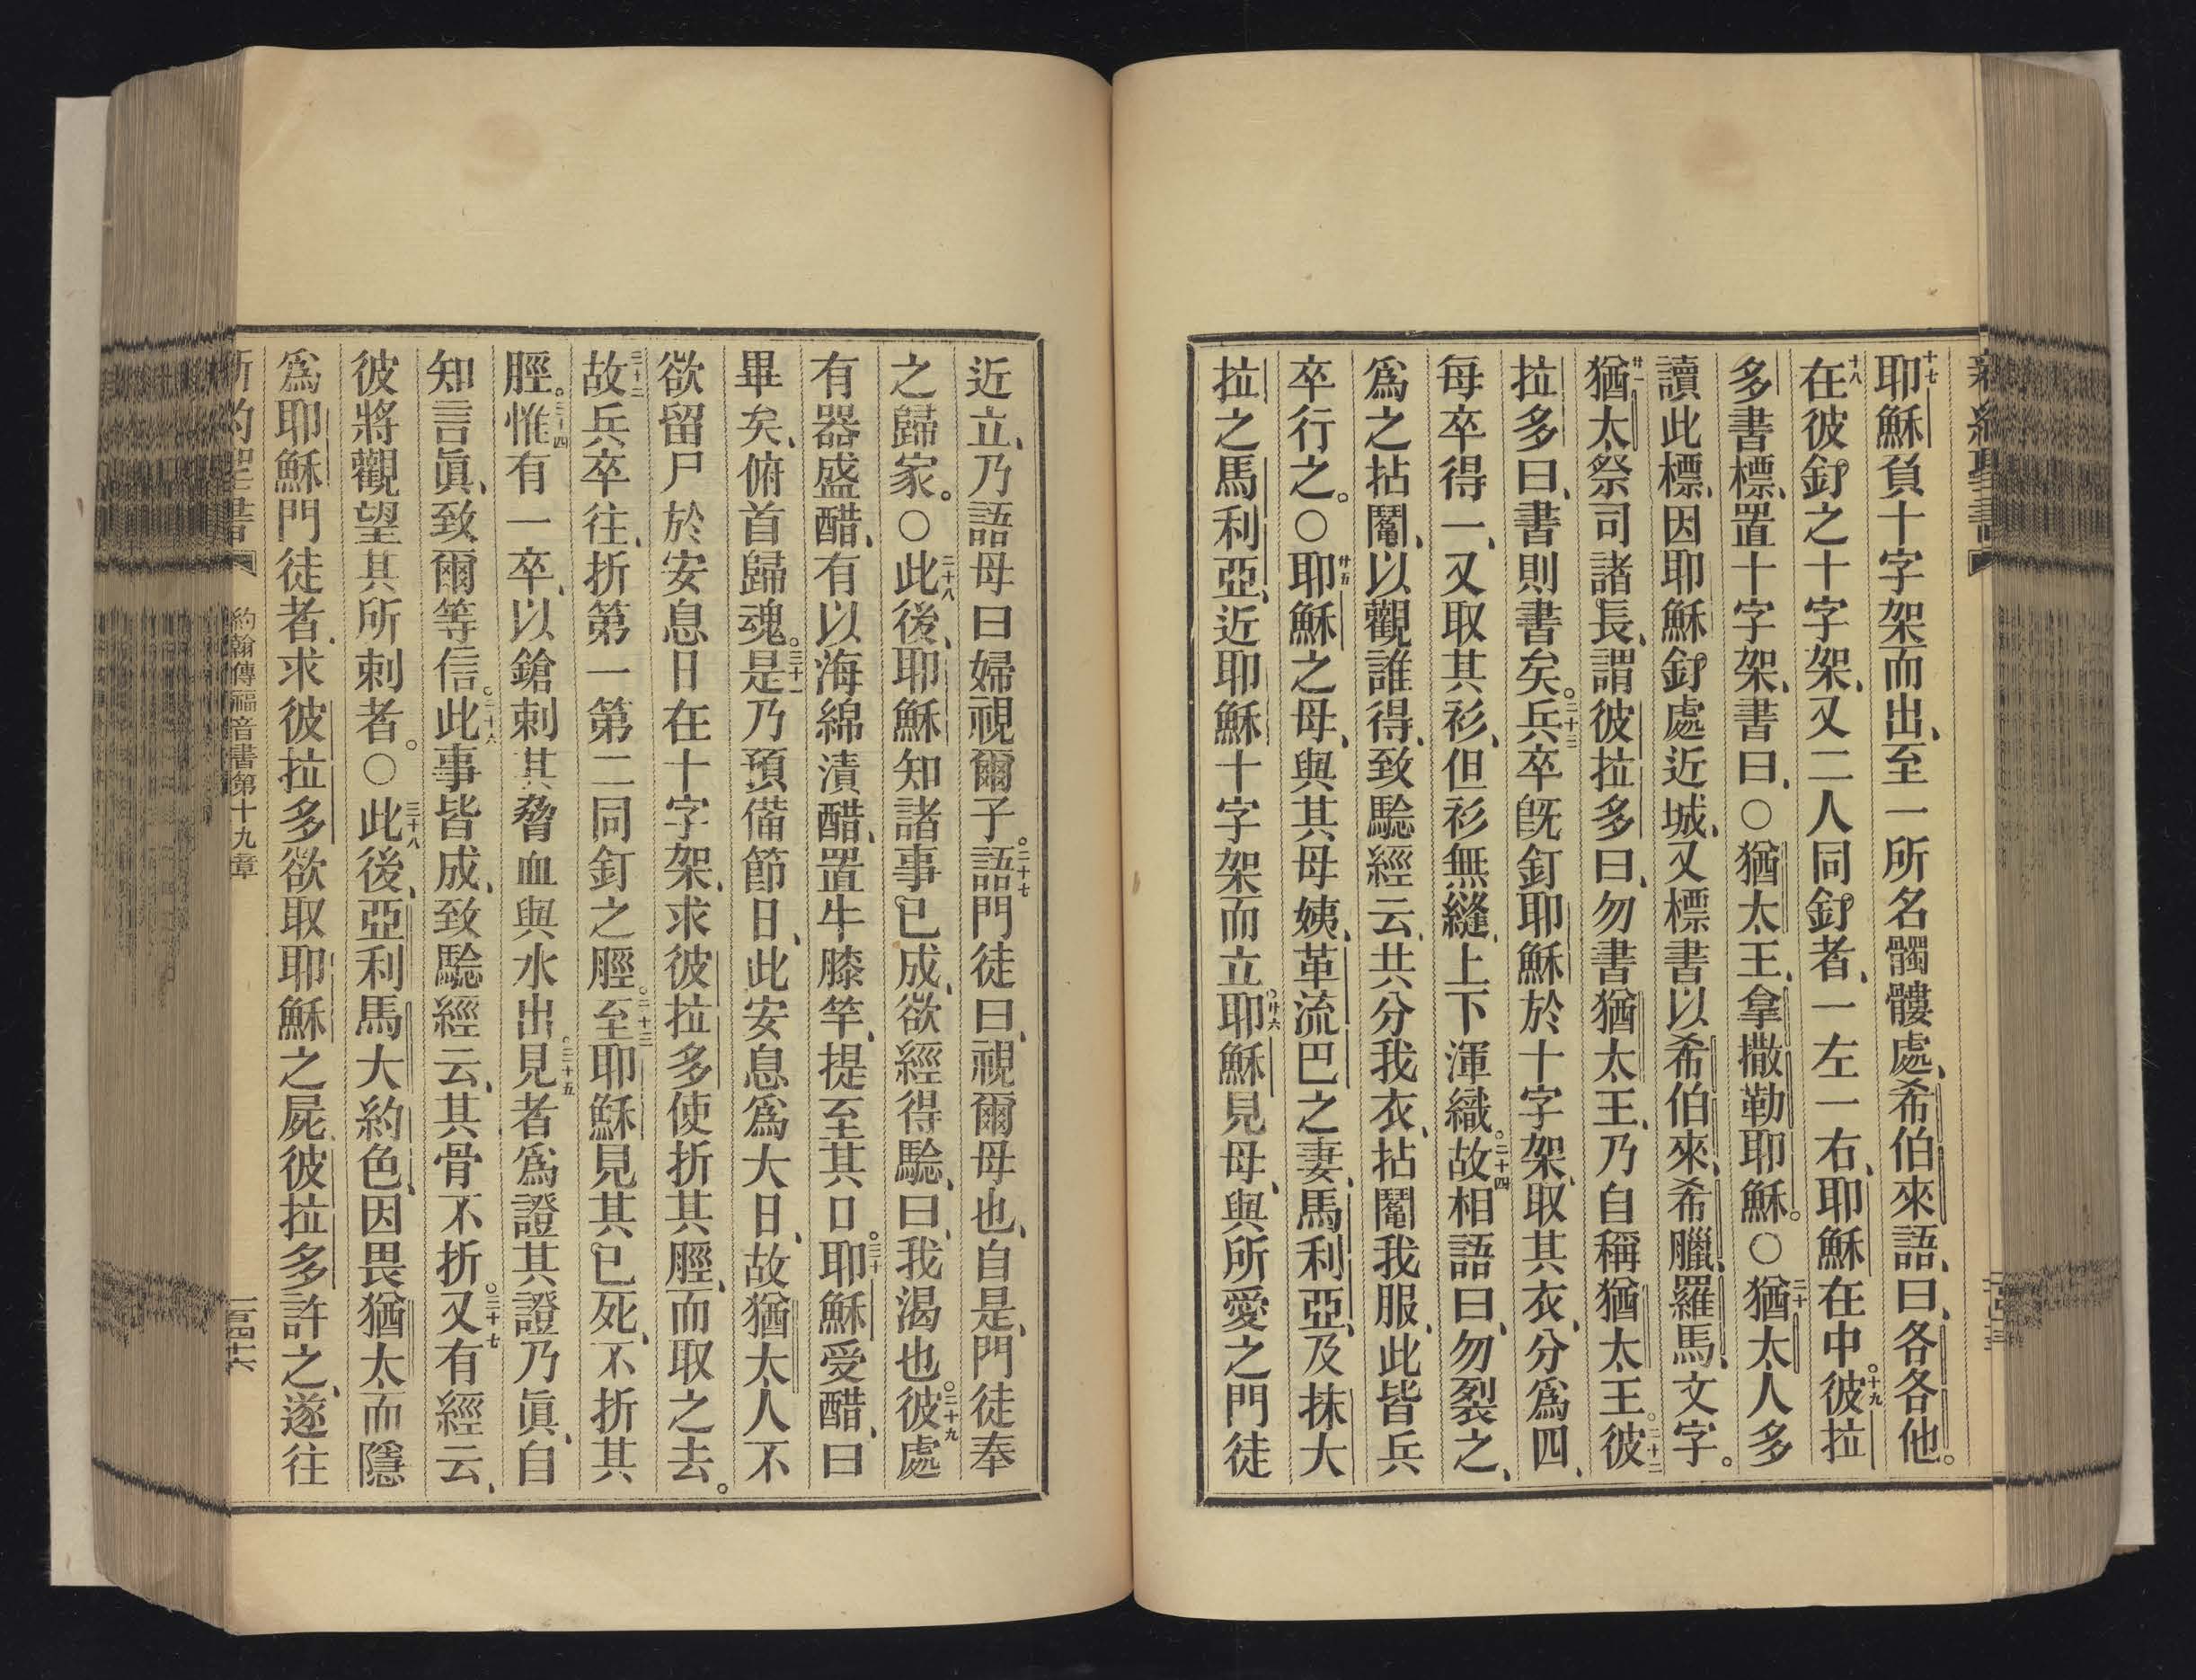 十七耶穌負十字架而出、至一所名髑髏處、希伯來語、曰、各各他。
十八在彼釘之十字架、又二人同釘者、一左一右、耶穌在中。十九彼拉
多書標、置十字架、書曰、○猶太王、拿撒勒耶穌。○二十猶太人多
讀此標、因耶穌釘處近城、又標書以希伯來、希臘、羅馬、文字。
廿一猶太祭司諸長、謂彼拉多曰、勿書猶太王、乃自稱猶太王。二十二彼
拉多曰、書則書矣。二十三兵卒旣釘耶穌於十字架、取其衣、分爲四、
每卒得一、又取其衫、但衫無縫、上下渾織。二十四故相語曰、勿裂之、
爲之拈鬮、以觀誰得、致驗經云、共分我衣、拈鬮我服、此皆兵
卒行之。○廿五耶穌之母、與其母姨、革流巴之妻、馬利亞、及抹大
拉之馬利亞、近耶穌十字架而立。廿六耶穌見母、與所愛之門徒
近立、乃語母曰婦視爾子。二十七語門徒曰、視爾母也、自是、門徒奉
之歸家。○二十八此後、耶穌知諸事已成、欲經得驗、曰、我渴也。二十九彼處
有器盛醋、有以海綿漬醋、置牛膝竿、提至其口。三十耶穌愛醋、曰
畢矣、俯首歸魂。三十一是乃預備節日、此安息爲大日、故猶太人不
欲留尸於安息日在十字架、求彼拉多使折其脛、而取之去。
三十二故兵卒往、折第一第二同釘之脛。三十三至耶穌見其已死、不折其
脛。三十四惟有一卒、以鎗刺其脅血與水出。三十五見者爲證其證乃眞、自
知言眞、致爾等信。三十六此事皆成、致驗經云、其骨不折。三十七又有經云、
彼將觀望其所刺者。○三十八此後、亞利馬大約色、因畏猶太而隱
爲耶穌門徒者、求彼拉多欲取耶穌之屍、彼拉多許之、遂往
新約聖書 約翰傳福音書第十九章